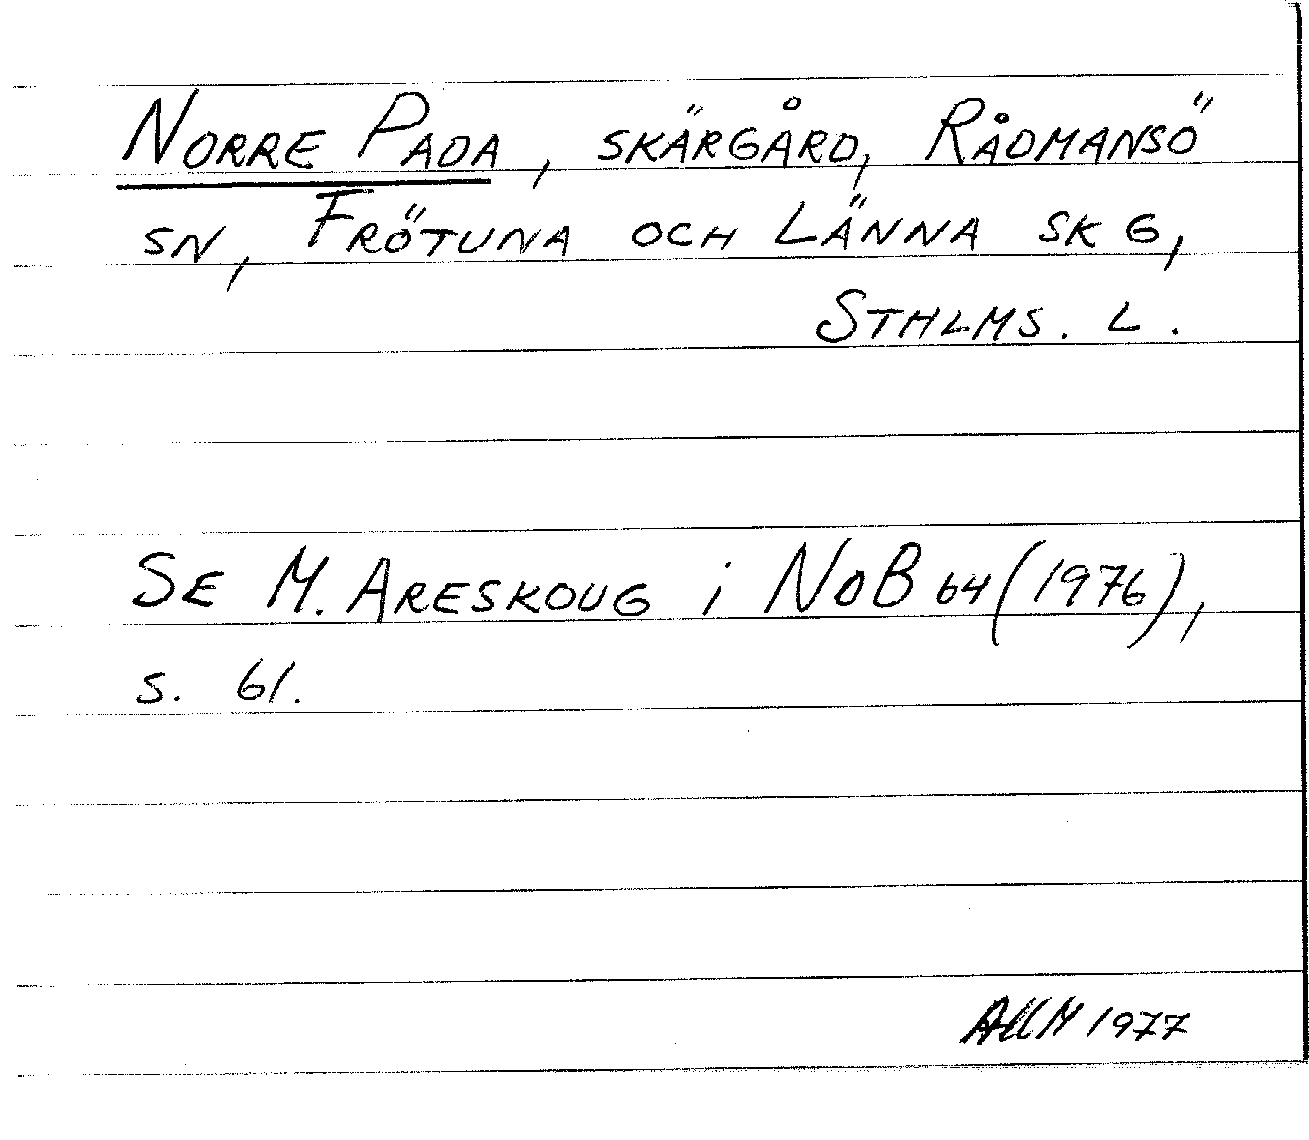 NORRE PADA, SKÄRGÅRD, RÅDMANSÖ
SN, FRÖTUNA OCH LÄNNA SKG,
STHLMS. L.
SE M. ARESKOUG i NoB 64 (1976),
s. 61.
1977